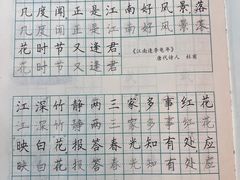 几度闻正是江南好风景落
几度闻正是江南好风景落
花时节又逢君
花时节又逢君
《江南逢李龟年》
唐代诗人 杜甫
江深竹静两三家多事红花
江深竹静两三家多事红花
映白花报答春光知有处应
映白花报答春光知有处应